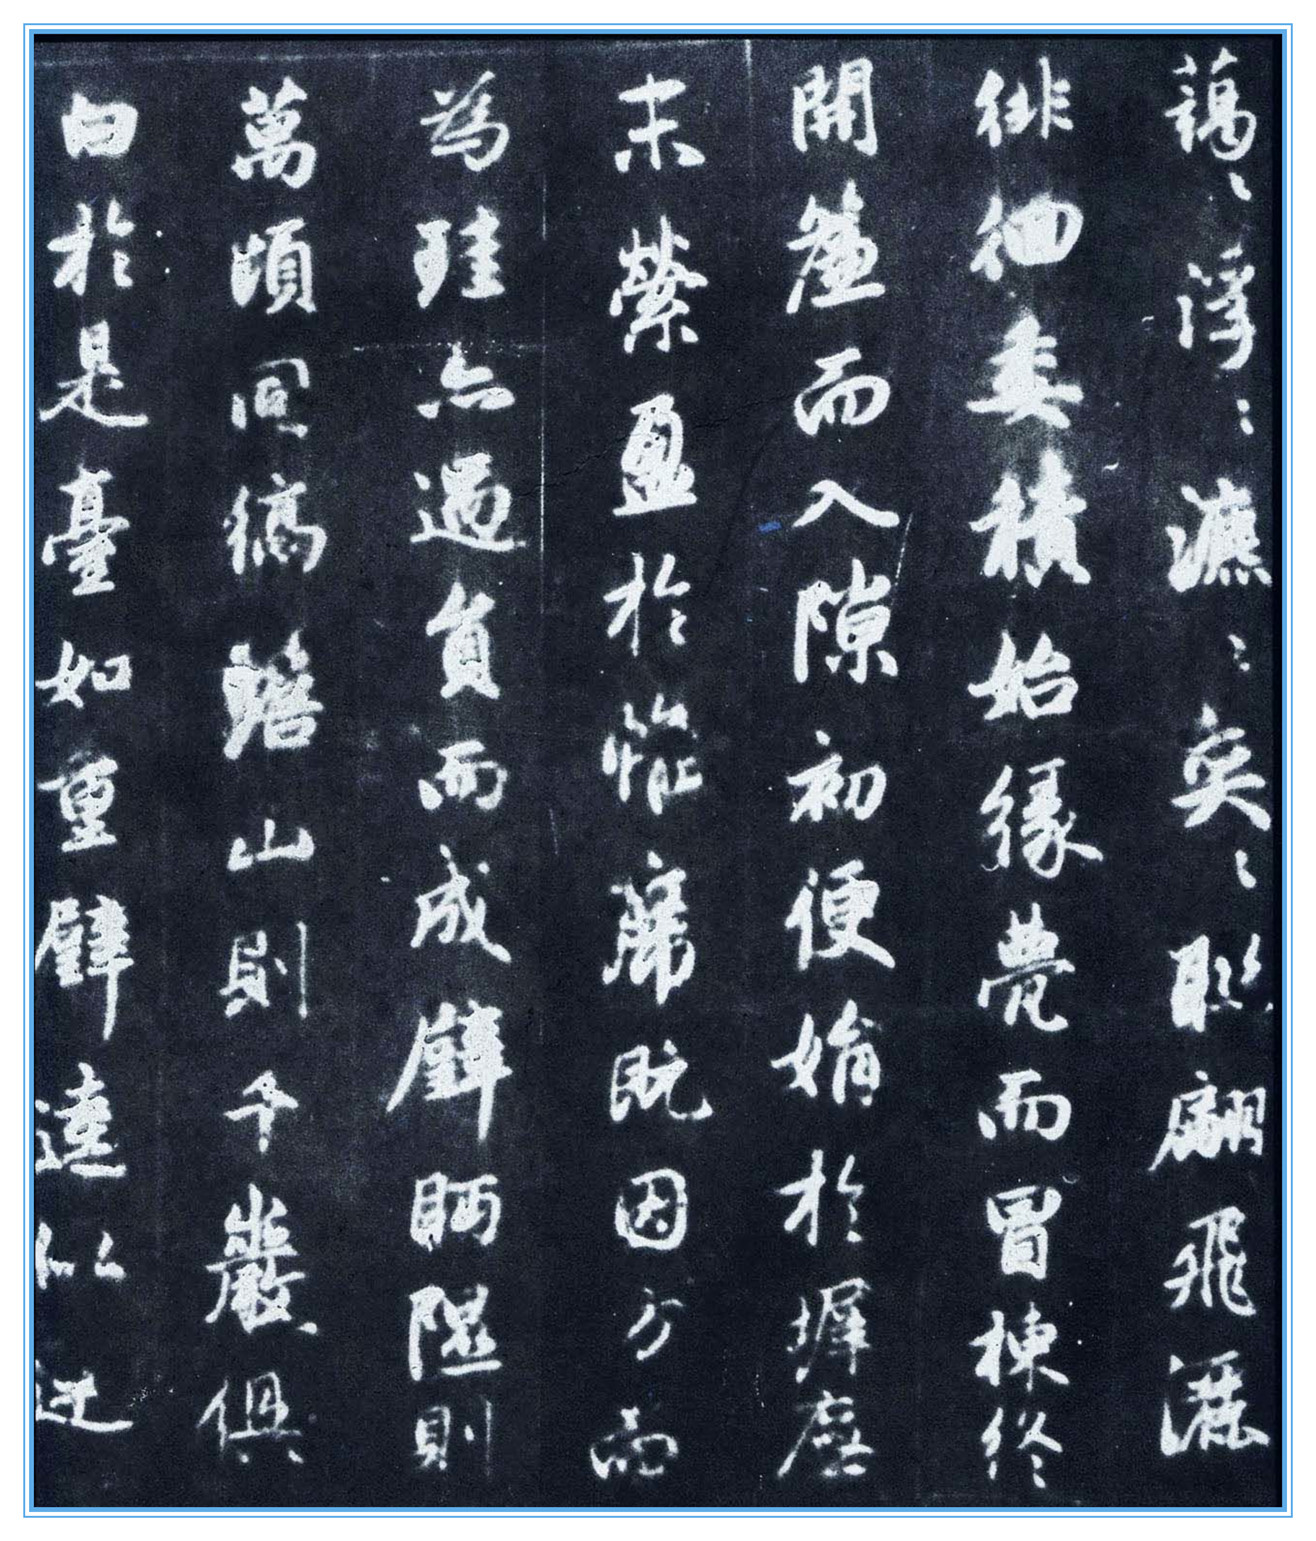 藹〻浮〻瀌〻奕〻聯翩飛灑
徘徊委積始緣甍而冒棟終
開簾而入隙初便娟於墀廡
末縈盈於帷席既因方而
為珪亦遇員而成璧眄隰則
萬頃同縞瞻山則千巖俱
白於是臺如重璧逵似連